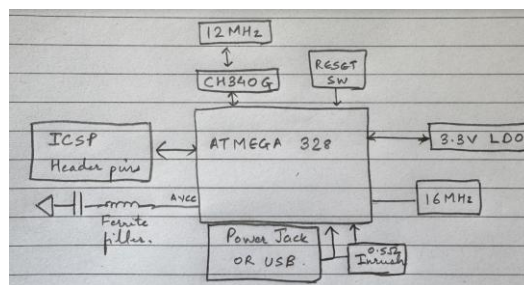 12 MHz
CH340G
RESET
SW
ICSP
Header pins
ATMEGA 328
3.3V LDO
AVCC
Ferrite
filter.
16 MHz
Power Jack
OR USB.
0.5Ω
Inrush